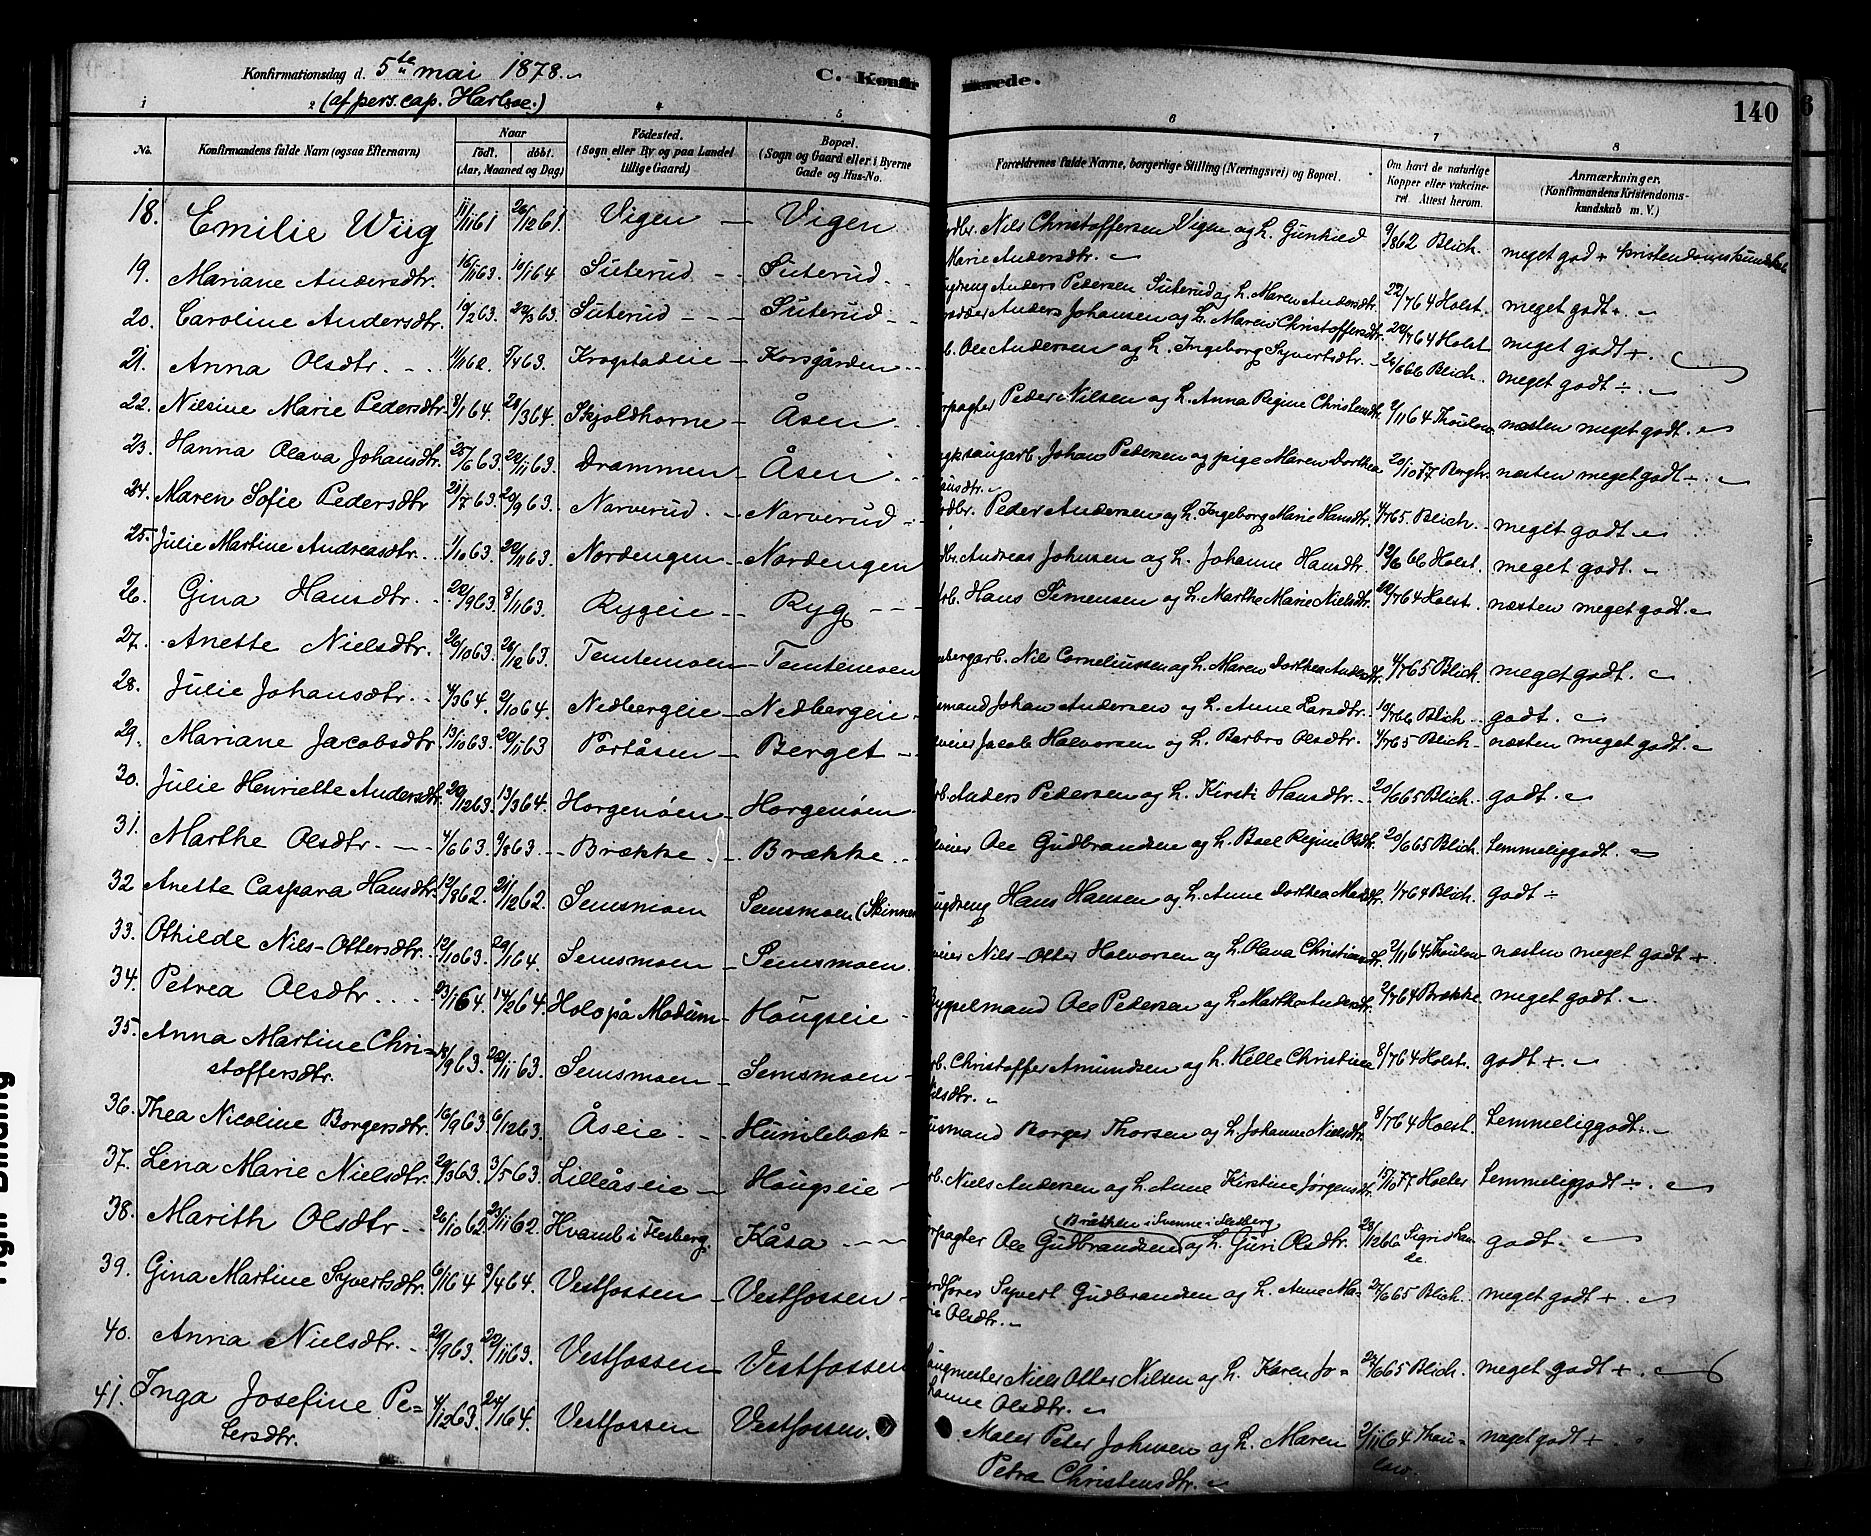 Konfirmationsdag d. 5te mai 1878.
(af pers. cap. Harboe.)
C. Konfirmerede.
140
1 2 4 5 6 7 8
No. Konfirmandens fulde Navn (ogsaa Efternavn) Naar født. døbt. (Aar, Maaned og Dag) Fødested. (Sogn eller By og paa Landet tillige Gaard) Bopæl. (Sogn og Gaard eller i Byerne Gade og Hus-No. Forældrenes fulde Navne, borgerlige Stilling (Næringsvei) og Bopæl. Om havt de naturlige Kopper eller vakcineret. Attest herom. Anmærkninger. (Konfirmandens Kristendomskundskab m. V.)
18. Emilie Wiig 11/11 61 26/12 61. Vigen – Vigen Nils Christoffersen Vigen og h. Gunhild Marie Andersdtr. 9/8 62 Blich. meget god + kristendomskundskab
19. Mariane Andersdtr. 16/11 63. 10/1 64 Suterud – Suterud Anders Pedersen Suterud og h. Maren Andersdtr. 22/7 64 Holst. meget godt +.
20. Caroline Andersdtr. 10/2 63. 29/3 63. Suterud – Suterud Anders Johansen og h. Maren Christoffersdtr. 22/7 64 Holst meget godt +.
21. Anna Olsdtr. 11/11 62. 5/4 63. Krogstadeie – Korsgården Ole Andersen og h. Ingeborg Syvertsdtr. 26/6 66 Blich. meget godt ÷.
22. Nilsine Marie Pedersdtr. 8/1 64. 28/3 64. Skjoldhorne – Åsen Peder Nilsen og h. Anna Regine Christensdtr. 2/11 64 Thoulow næsten meget godt.
23. Hanna Olava Johansdtr. 25/6 63. 22/11 63. Drammen – Åsen Johan Pedersen og pige Maren Dorthea 20/10 77 Borghr. næsten meget godt ÷.
24. Maren Sofie Pedersdtr 21/7 63 20/9 63. Narverud – Narverud Peder Andersen og h. Ingeborg Marie Hansdtr. 4/7 65. Blich. meget godt
25. Julie Martine Andreasdtr. 1/10 63. 22/11 63. Nordengen – Nordengen Andreas Johnsen og h. Johanne Hansdtr. 12/6 66 Holst. meget godt.
26. Gina Hansdtr. 22/9 63. 8/11 63. Rygeie – Ryg Hans Simensen og h. Marthe Marie Nielsdtr. 22/7 64 Holst. næsten meget godt.
27. Anette Nielsdtr. 26/10 63. 26/12 63. Temtemoen – Temtemoen Nils Corneliussen og h. Maren Dorthea Andersdtr. 4/7 65 Blich. meget godt.
28. Julie Johansdtr. 4/3 64. 2/10 64. Nedbergeie – Nedbergeie Johan Andersen og h. Anne Larsdtr. 10/7 66 Blich. godt.
29. Mariane Jacobsdtr. 13/10 63. 22/11 63 Portåsen – Berget Jacob Halvorsen og h. Barbro Olsdtr. 4/7 65 Blich. næsten meget godt.
30. Julie Henriette Andersdtr. 20/12 63. 13/3 64. Horgenøen – Horgenøen Anders Pedersen og h. Kirsti Hansdtr. 20/6 65 Blich. godt.
31. Marthe Olsdtr. 4/6 63. 9/8 63. Brække – Brække Ole Gudbrandsen og h. Boel Regine Olsdtr. 20/6 65 Blich. temmelig godt.
32 Anette Caspara Hansdtr. 12/8 62. 21/12 62. Semsmoen Semsmoen (Skinnes Hans Hansen og h. Anne Dorthea Madsdtr. 1/7 64 Blich. godt ÷
33. Othilde Nils-Ottersdtr. 12/10 63. 29/1 64. Semsmoen – Semsmoen Nils-Otter Halvorsen og h. Olava Christiansdtr. 2/11 64 Thoulow næsten meget godt +.
34. Petrea Olsdtr 23/1 64. 14/2 64. Holo på Modum – Hougseie Ole Pedersen og h. Marthe Andersdtr. 2/7 64 Brække meget godt.
35. Anna Martine Chri=
stoffersdtr. 18/9 63. 22/11 63. Semsmoen – Semsmoen Christoffer Amundsen og h. Helle Christine 8/7 64 Holst. godt +.
36. Thea Nicoline Borgersdtr. 16/9 63. 6/12 63. Åseie – Humlebæk Borger Thorsen og h. Johanne Nielsdtr. 8/7 64 Holst. temmelig godt ÷
37. Lena Marie Nielsdtr. 20/3 63. 3/5 63. Lilleåseie – Hougseie Niels Andersen og h. Anne Kirstine Jørgensdtr. 15/10 77 Holter temmelig godt ÷.
38. Marith Olsdtr 26/10 62. 23/11 62. Hvamb i Flesberg Kåsa (Bråthen i Svenne i Flesberg) Ole Gudbrandsen og h. Guri Olsdtr. 28/12 66 godt.
39. Gina Martine Syvertsdtr. 6/1 64 3/4 64. Vestfossen – Vestfossen Syvert Gudbrandsen og h. Anne Ma=
rie Olsdtr. 27/6 65 Blich. meget godt +.
40. Anna Nielsdtr. 29/9 63. 22/11 63. Vestfossen – Vestfossen Niels Otter Nilsen og h. Karen Jo=
hanne Olsdtr. 27/6 65 Blich. meget godt +.
41. Inga Josefine Pe=
tersdtr. 4/12 63. 24/1 64. Vestfossen Vestfossen. Maler Peter Johnsen og h. Maren
Petra Christensdtr. 2/11 64 Thou=
low. meget godt +.